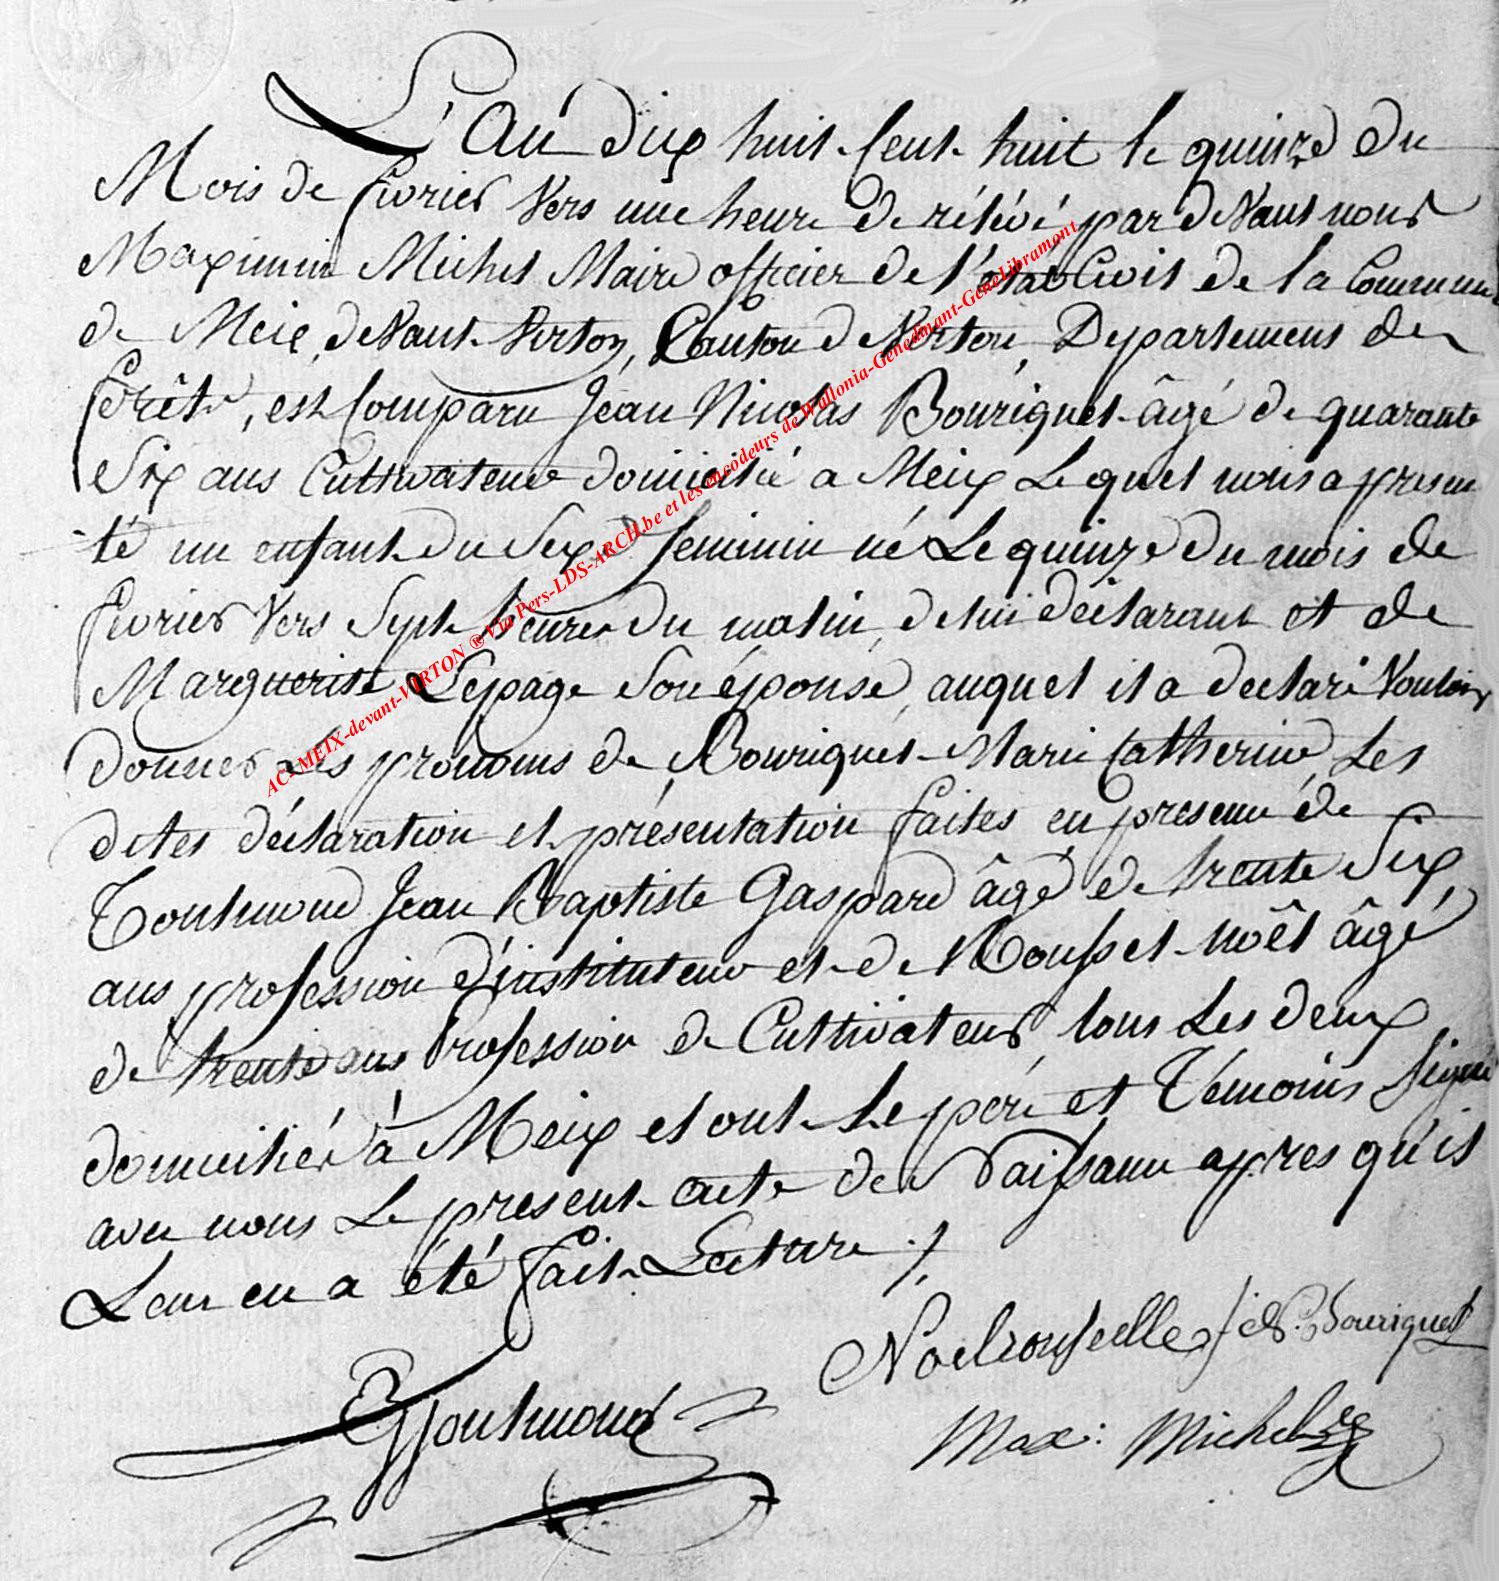 L'an dix huit cent huit le quinze du
Mois de fevrier vers une heure de rélévé par devant nous
Maximin Michel Maire officier de l'état civil de la commune
de Meix devant Virton, Canton de Virton, Departement des
forêts, est comparu Jean Nicolas Bouriquet âgé de quarante
six ans Cultivateur domicilié a Meix Lequel nous a presen
té un enfant du sexe feminin né Le quinze du mois de
fevrier vers sept heures du matin, de lui déclarant et de
Marguerite Lepage son épouse, auquel il a declaré vouloir
donner Les prenoms de Bouriquet Marie Catherine, Les
dites déclaration et présentation faites en presence de
Toulmond Jean Baptiste Gaspard âgé de trente six
ans profession d'instituteur et de Roussel noël âgé
de trente ans Profession de Cultivateur, tous Les deux
domiciliés à Meix et ont Le pére et Témoins signé
avec nous Le present acte de Naissance apres qu'il
Leur en a été fait Lecture ./.
Noel rousselle j: N: Bouriquet
Toulmond
Max: Michel
AC-MEIX-devant-VIRTON ® Via Pers-LDS-ARCH.be et les encodeurs de Wallonia-Genedinant-GeneLibramont